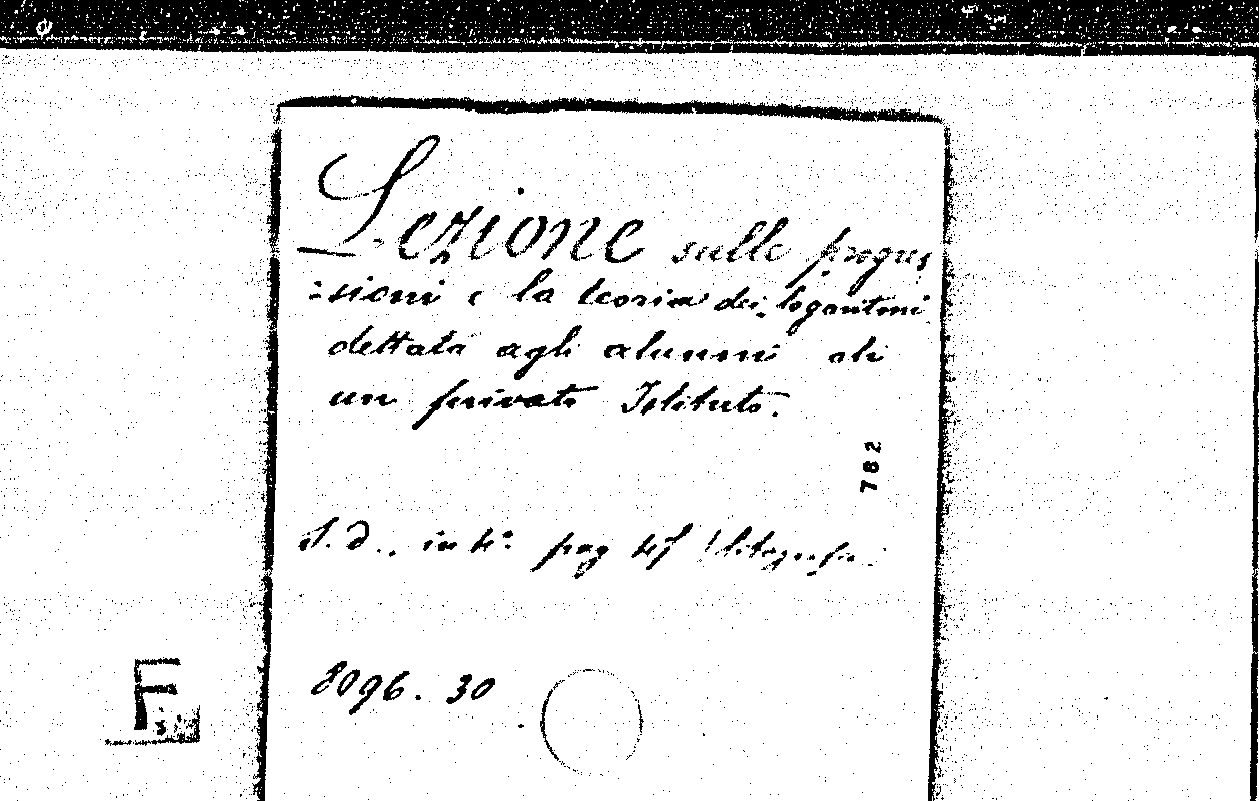 Lezione sulle progres
=sioni e la teoria dei logaritmi
dettata agli alunni di
un privato Istituto.
782
S. d., in 4º. pag
8096. 30
F